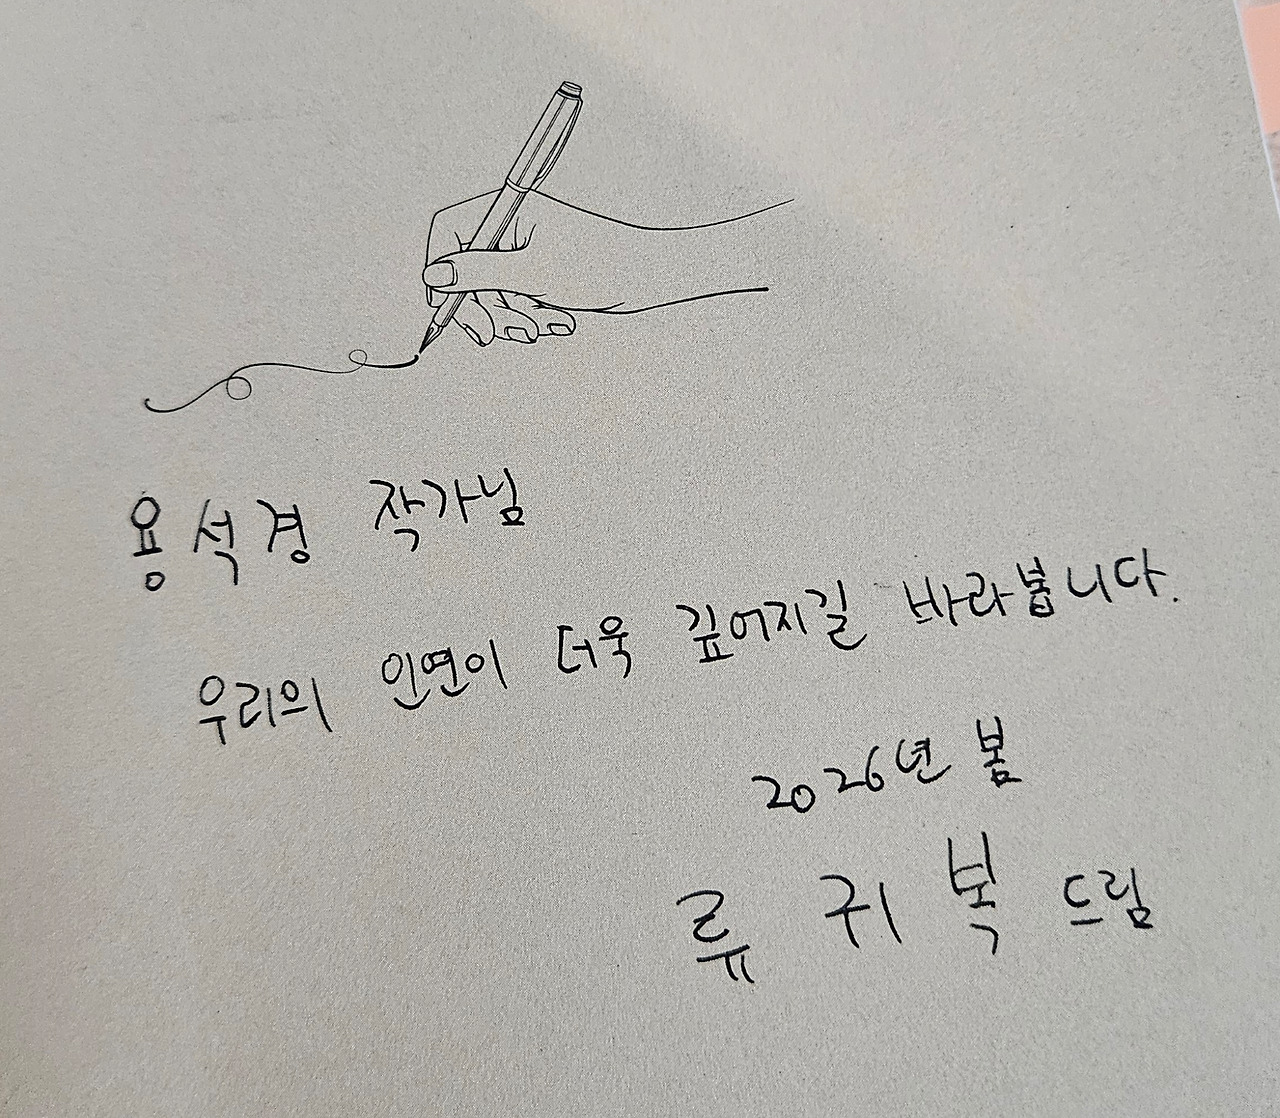 용석경 작가님
우리의 인연이 더욱 깊어지길 바라봅니다.
2026년 봄
류귀복 드림